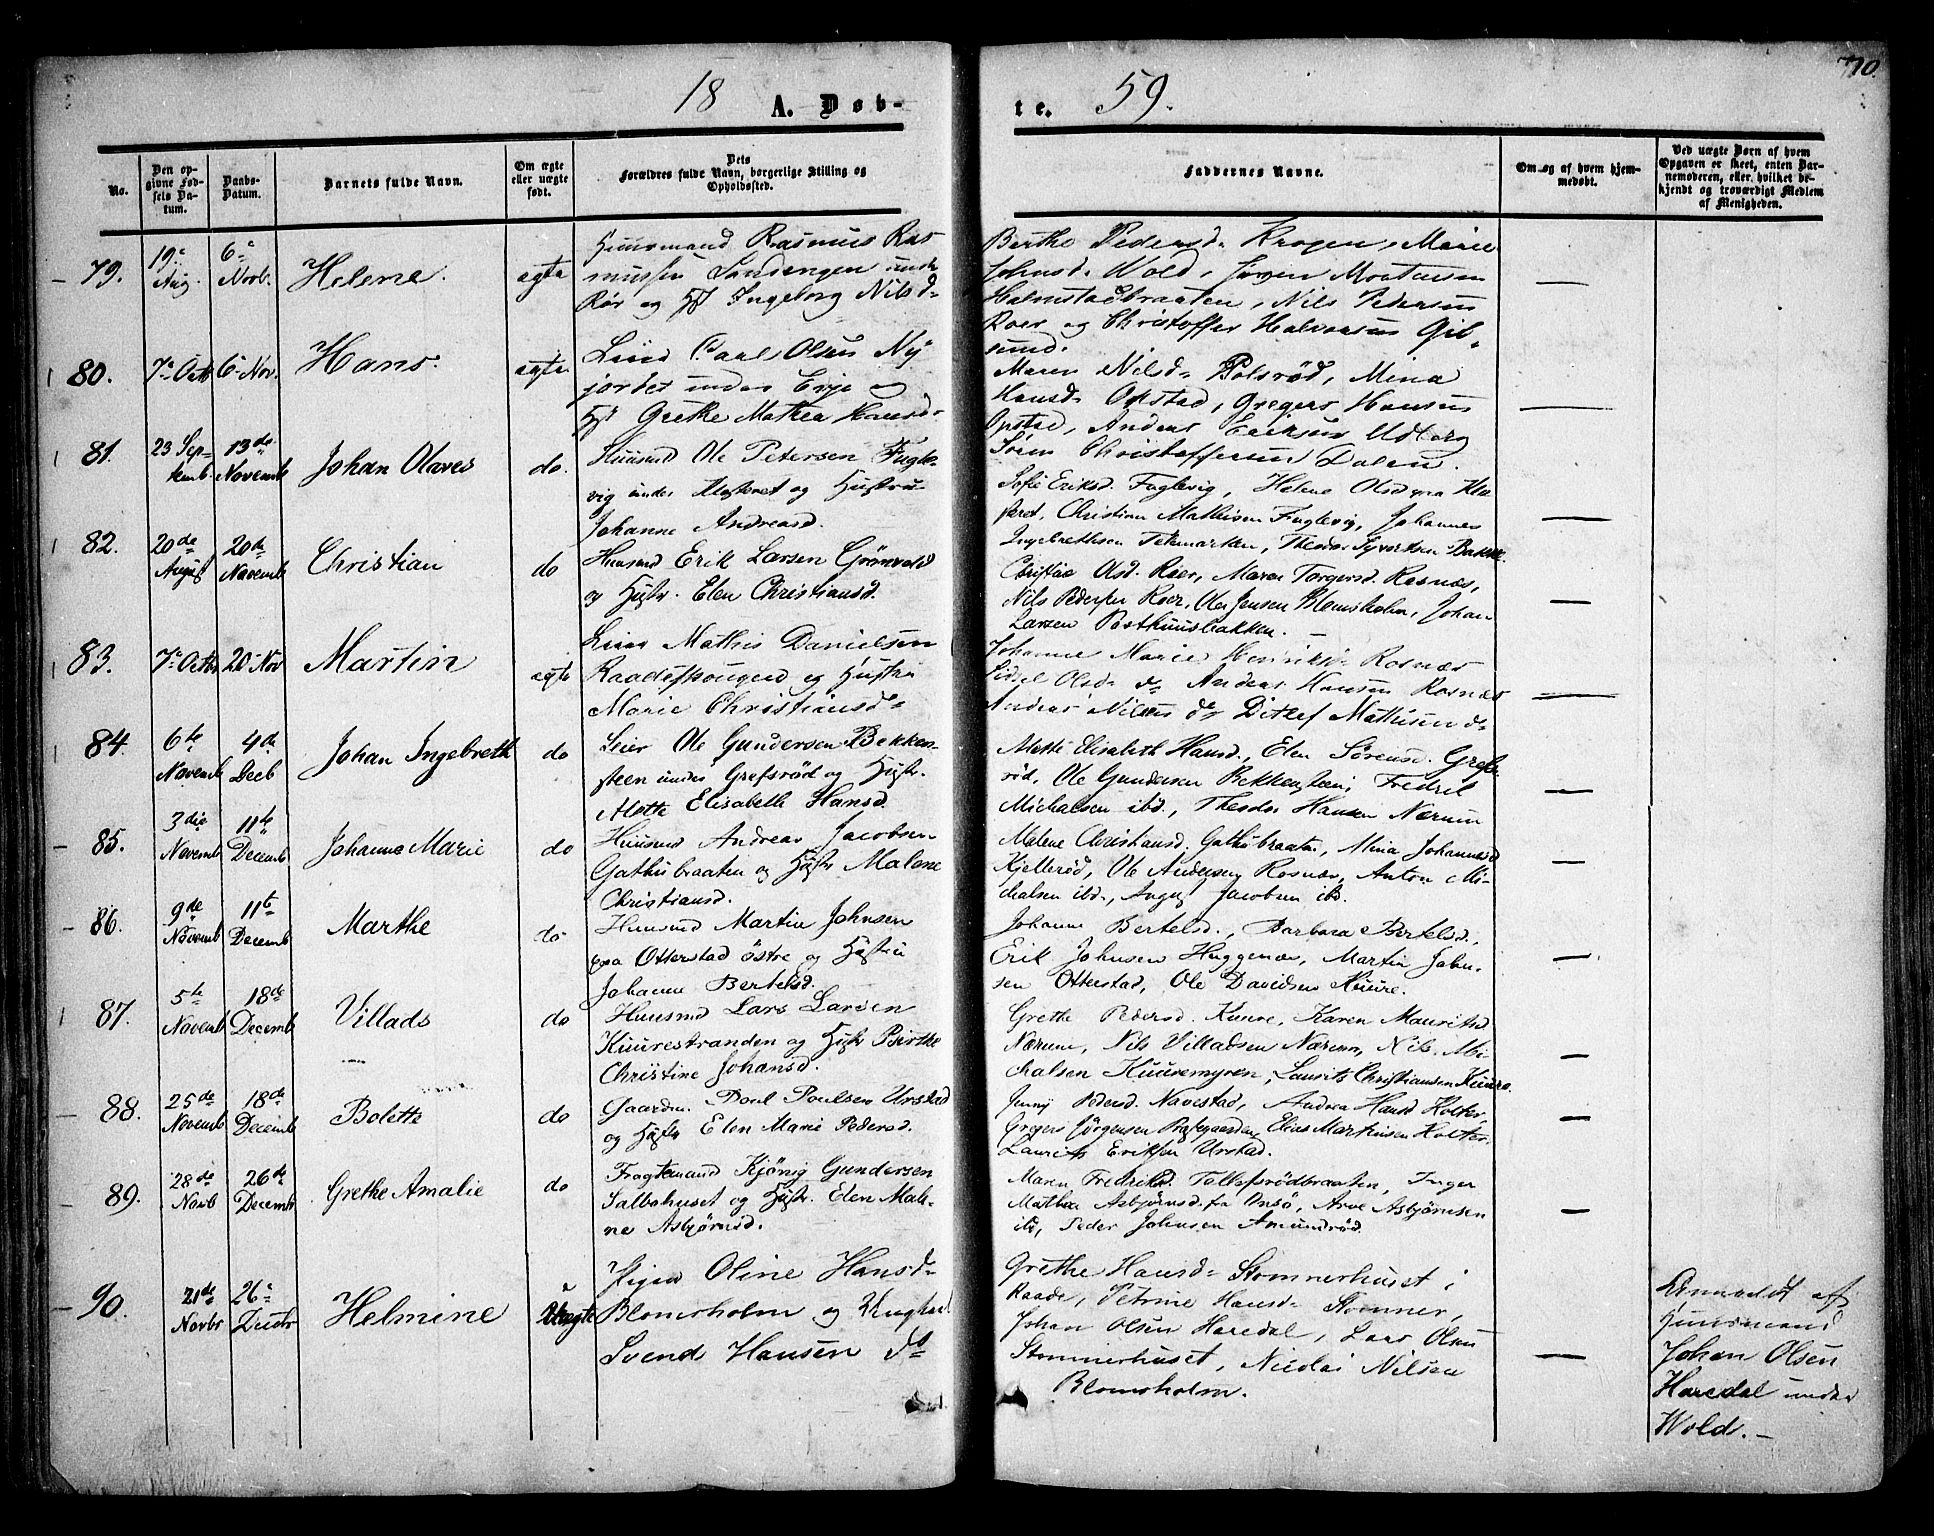 110.
18 A. Døb-
te. 59.
No.
Den op-
givne Fød-
sels Da-
tum.
Daabs-
Datum.
Barnets fulde Navn.
Om ægte
eller uægte
født.
Dets
Forældres fulde Navn, borgerlige Stilling og
Opholdssted.
Faddernes Navne.
Om og af hvem hjem-
medøbt.
Ved uægte Børn af hvem
Opgaven er skeet, enten Bar-
nemoderen, eller hvilket be-
kjendt og troværdigt Medlem
af Menigheden.
79.
19e
Aug.
6e
Novb.
Helene.
ægte
Huusmand Rasmus Ras
mussen Sandengen under
Rör og Hst Ingeborg Nilsd-
Berthe Pedersd- Krogen, Marie
Johnsd- Wold, Jörgen Mortensen
Halmstadbraaten, Nils Pedersen
Roer og Christoffer Halvorsen Gil-
sund.
80.
7e Octb
6e Nov.
Hans.
ægte
Leier Paul Olsen Ny
jordet under Evje og
Hst Grethe Mathea Hansd-
Maren Nilsd- Bolsröd, Mina
Hansd- Opstad, Gregers Hansen
Opstad, Anders Eriksen Udberg
Sören Christoffersen Dalen.
81.
23 Sep-
temb.
13de
Novemb
Johan Olaves
do.
Huusmd Ole Petersen Fugle-
vig under Klosteret og Hustru
Johanne Andreasd.
Sofie Eriksd. Fuglevig, Helene Olsd paa Klo
steret, Christian Mathisen Fuglevig, Johannes
Ingebrethsen Telemarken, Theodor Syvertsen Bakke
82.
20de
August
20de
Novemb
Christian
do
Huusmd Erik Larsen Grönvold
og Hustr. Elen Christiansd.
Christine Olsd. Roer, Maren Torgersd. Rosnæs,
Nils Pedersen Roer, Ole Jensen Blomsholm, Johan
Larsen Posthuusbakken.
83.
7e Octbr
20 Nov
Martin
ægte
Leier Mathis Danielsen
Raadeskougen og Hustru
Marie Christiansd-
Johanne Marie Henriksd- Rosnæs
Sidsel Olsd- do Andreas Hansen Rosnæs
Anders Nilsen do Ditlef Mathisen do
84.
6te
Novemb
4de
Decb
Johan Ingebreth
do
Leier Ole Gundersen Bekken-
steen under Grefsröd og Hustr.
Mette Elisabeth Hansd.
Mette Elisabeth Hansd., Elen Sörensd. Grefs-
röd, Ole Gundersen Bekkensteen, Fredrik
Michalsen ibd., Theodor Hansen Nærum
85.
3die
Novemb
11te
Decemb
Johanne Marie
do
Huusmd Andreas Jacobsen
Gathubraaten og Hustr Malene
Christiansd.
Malene Christiansd. Gathubraaten, Mina Johannesd
Kjelleröd, Ole Andersen Rosnæs, Anton Mi-
chalsen ibd., August Jacobsen ibd.
86.
9de
Novemb
11te
Decemb
Marthe
do
Huusmd Martin Johnsen
paa Otterstad östre og Hustru
Johanne Bertelsd.
Johanne Bertelsd., Barbara Bertelsd.,
Erik Johnsen Huggenæs, Martin John-
sen Otterstad, Ole Davidsen Kuure.
87.
5te
Novemb
18de
Decemb
Villads
do
Huusmd Lars Larsen
Kuurestranden og Hustr Birthe
Christine Johansd.
Grethe Pedersd. Kuure, Karen Mauritsd
Nærum, Nils Villadsen Nærum, Nils Mi-
chalsen Kuuremyren, Laurits Christiansen Kuure
88.
25de
Novemb
18de
Decemb
Bolette
do
Gaardm. Poul Poulsen Urstad
og Hustr Elen Marie Pedersd.
Jenny Pedersd. Navestad, Andrea Hansd Holter
Gregers Jörgensen Prestegaarden, Elias Martinsen Holter
Laurits Eriksen Urstad.
89.
28de
Novb
26de
Decembr
Grethe Amalie
do
Fragtemand Kjönig Gundersen
Salbohuset og Hustr. Elen Mali-
ne Asbjörnsd.
Maren Fredriksd. Tollefsrödbraaten, Inger
Mathea Asbjörnsd. fra Onsö, Arve Asbjörnsen
ibd, Peder Johnsen Amundröd
90.
21de
Novbr
26e
Decbr
Helmine
Uægte
Pigen Oline Hansd-
Blomsholm og Ungkarl
Svend Hansen do
Grethe Hansd- Stomnerhuset i
Raade, Petrine Hansd- Stomner,
Johan Olsen Haredal, Lars Olsen
Stomnerhuset, Nicolai Nilsen
Blomsholm.
Anmeldt af
Huusmand
Johan Olsen
Haredal under
Wold.-